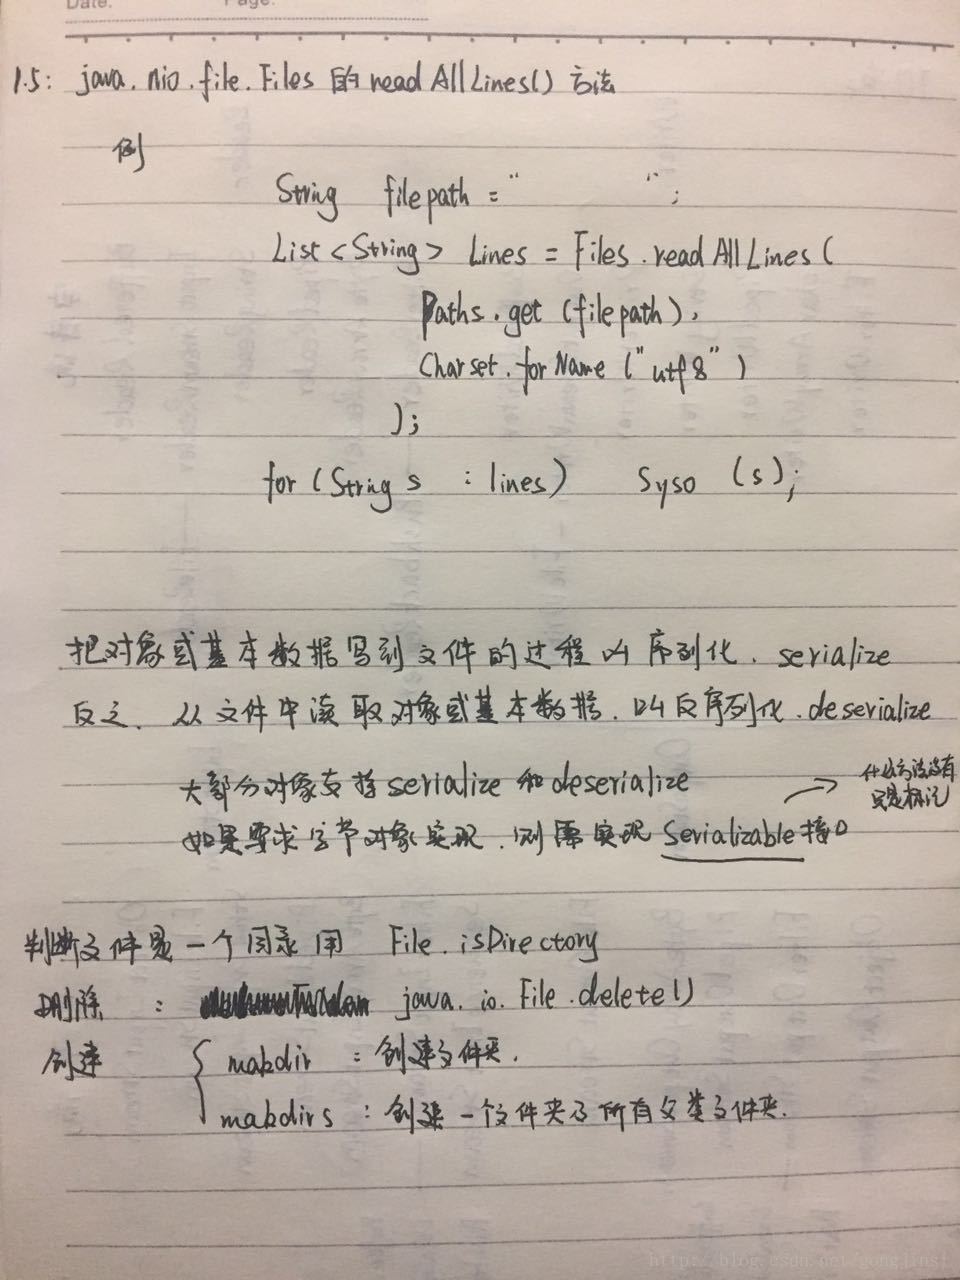 Date:
Page:
1.5: java.nio.file.Files 的 readAllLines() 方法
例
String filepath = " ";
List<String> Lines = Files.readAllLines(
Paths.get(filepath),
Charset.forName("utf8")
);
for(String s : lines) Syso (s);
把对象或基本数据写到文件的过程叫序列化. serialize
反之. 从文件中读取对象或基本数据. 叫反序列化. deserialize
大部分对象支持 serialize 和 deserialize
什么方法没有
只是标记
如果要求字节对象实现. 则需实现 Serializable 接口
判断文件是一个目录用 File.isDirectory
删除 : java.io.File.delete()
创建 { makdir : 创建文件夹.
makdirs : 创建一个文件夹及所有父类文件夹.